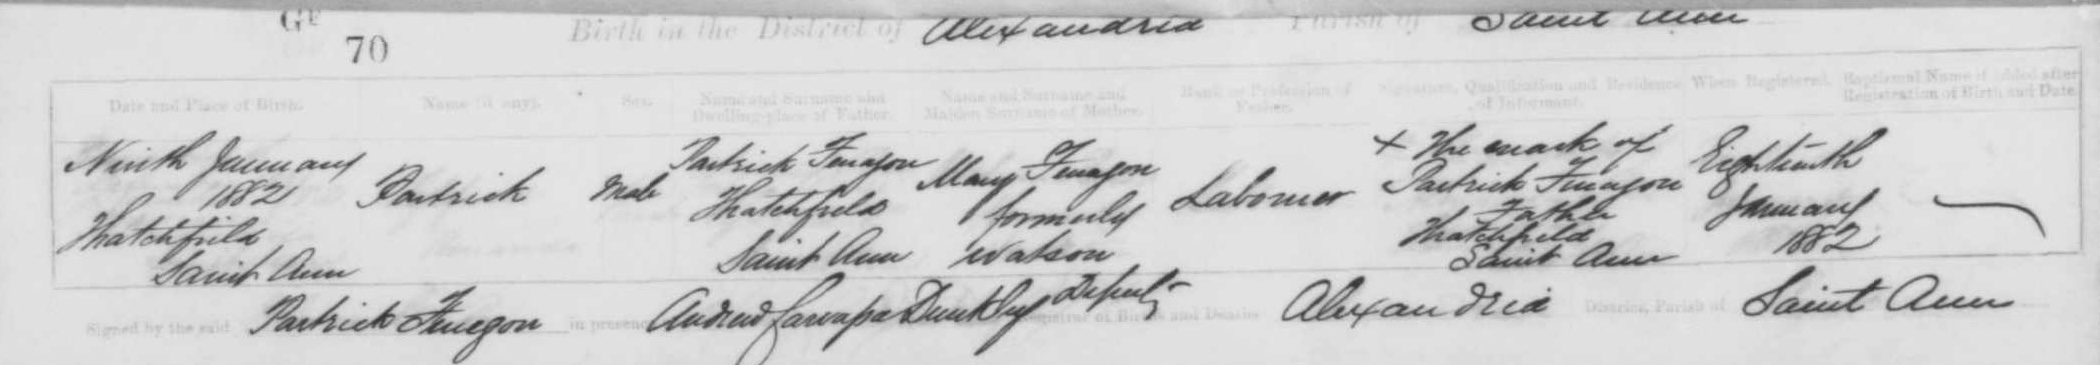 Ge
70
Birth in the District of Alexandria Parish of Saint Ann
Date and Place of Birth. Name (if any). Sex. Name and Surname and Dwelling-place of Father. Name and Surname and Maiden Surname of Mother. Rank or Profession of Father. Signature, Qualification and Residence of Informant. When Registered. Baptismal Name if added after Registration of Birth and Date.
Ninth January
1882
Thatchfield
Saint Ann
Patrick
Male
Patrick Finagon
Thatchfield
Saint Ann
Mary Finagon
formerly
Watson
Labourer
X The mark of
Patrick Finagon
Father
Thatchfield
Saint Ann
Eighteenth
January
1882
Signed by the said Patrick Finegon in presence Andrew Dunkley Deputy Registrar of Births and Deaths Alexandria District, Parish of Saint Ann